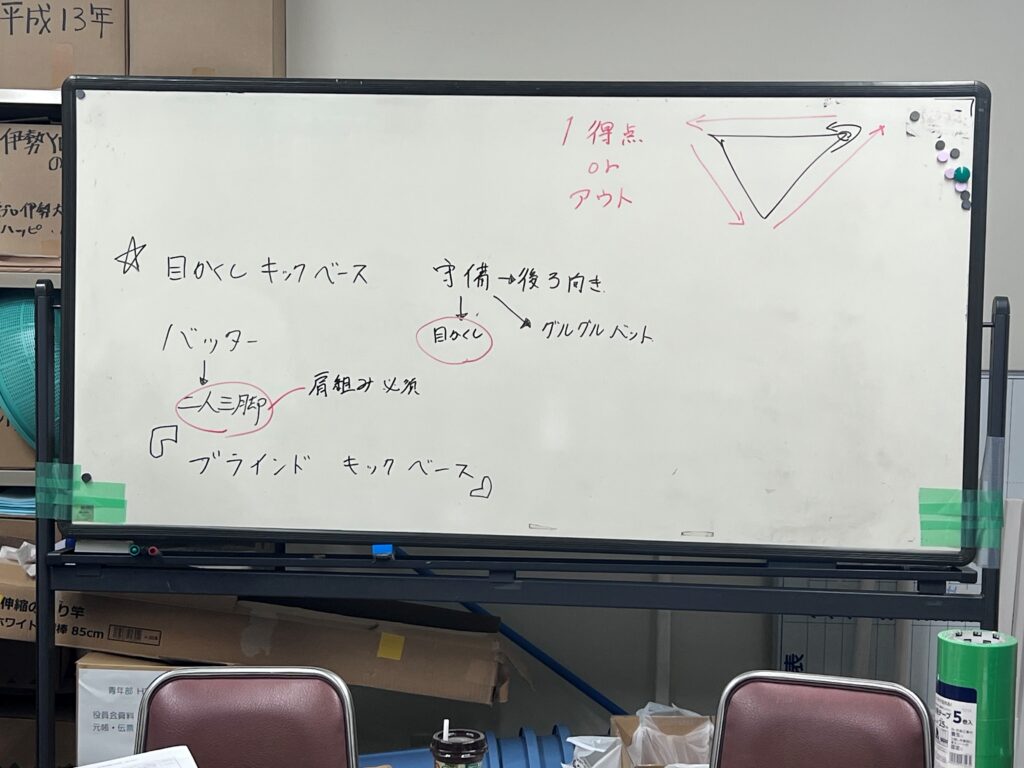 平成13年
伊勢Y
の
伊勢大
ハッピ
1 得点
or
アウト
☆ 目かくし キックベース
守備→後ろ向き
目かくし
グルグルバット
バッター
二人三脚
肩組み必須
『ブラインド キックベース』
伸縮の
り竿
ホワイト
棒 85cm
青年部
役員会資料
元帳・伝票
表
テープ
5巻入